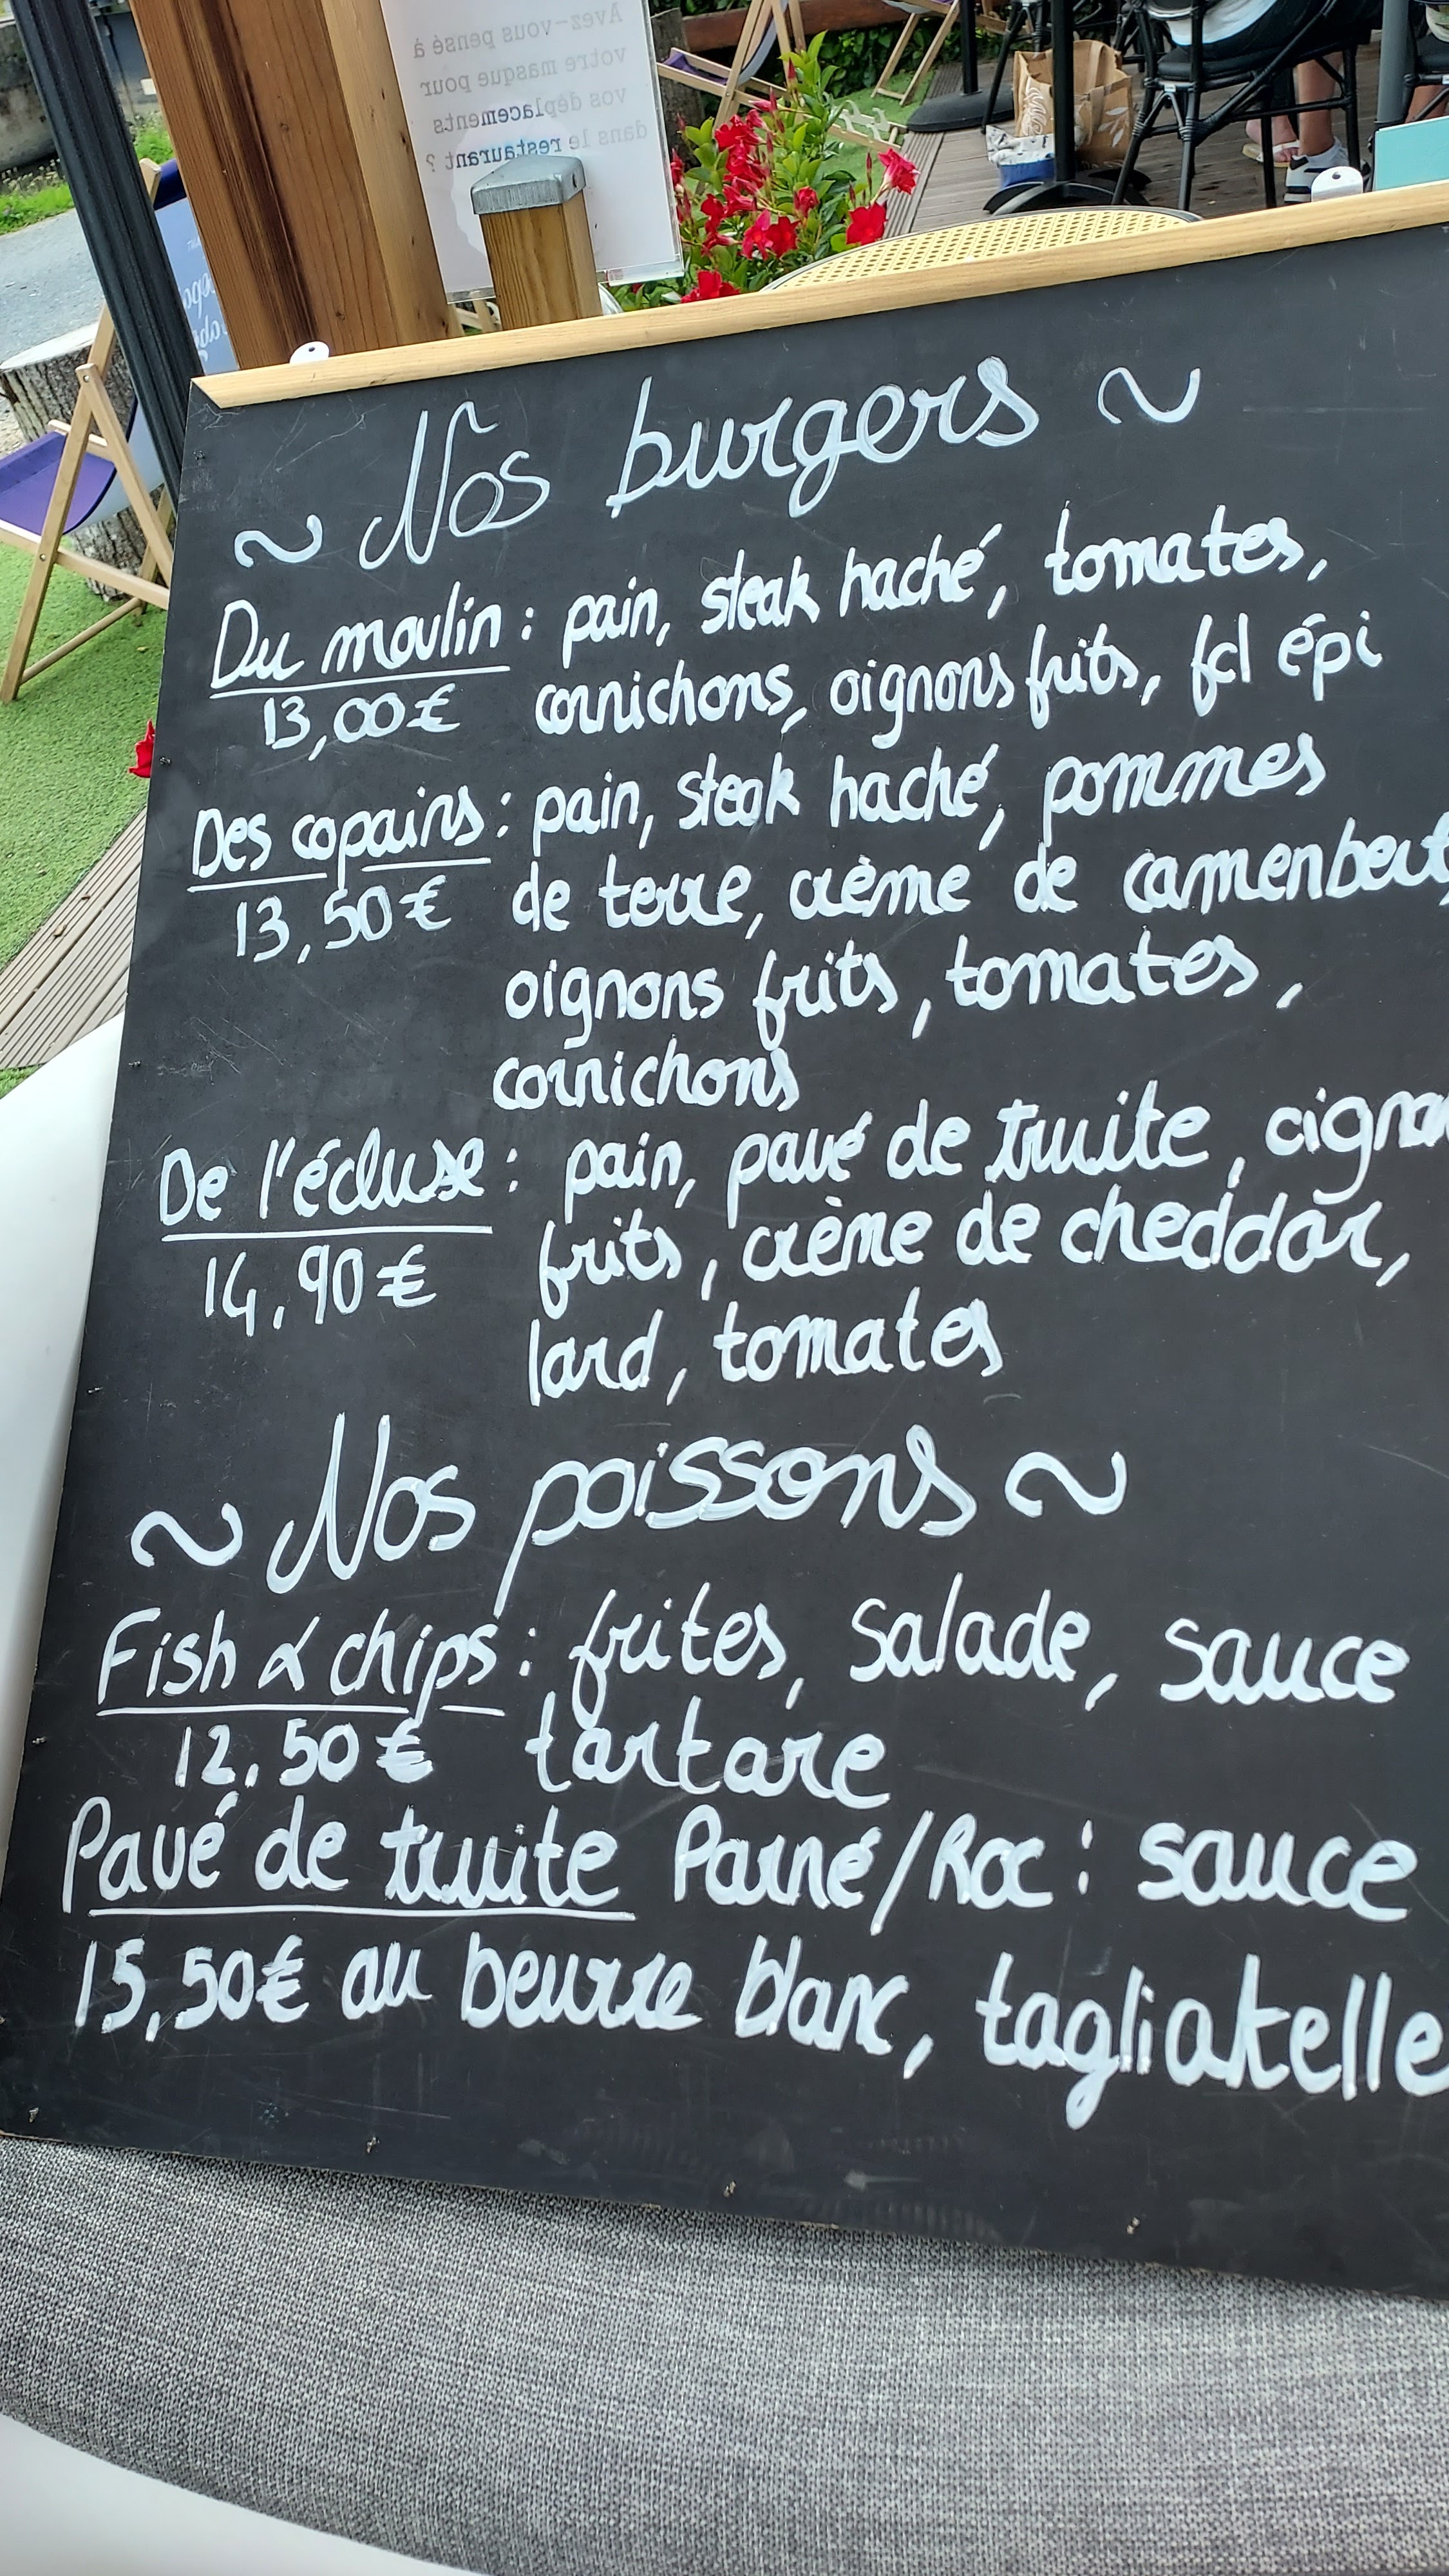 Avez-vous pensé à
votre masque pour
vos déplacements
dans le restaurant ?
~ Nos burgers ~
Du moulin : pain, steak haché, tomates,
13,00€ cornichons, oignons frits, fol épi
Des copains : pain, steak haché, pommes
13,50€ de terre, crème de camenbert,
oignons frits, tomates,
cornichons
De l'écluse : pain, pavé de truite, oignon
14,90€ frits, crème de cheddar,
lard, tomates
~ Nos poissons ~
Fish & chips : frites, salade, sauce
12,50€ tartare
Pavé de truite Pané/Roc : sauce
15,50€ au beurre blanc, tagliatelle